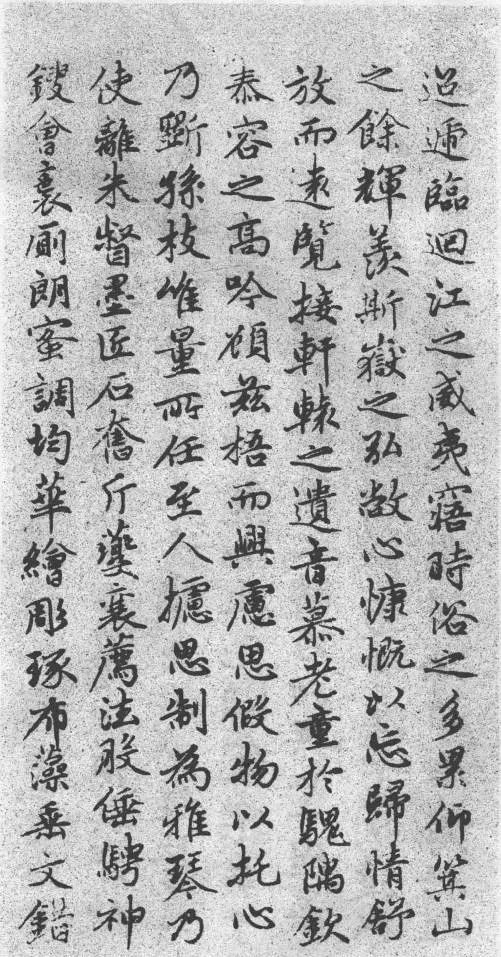 迢遞臨迴江之威夷寤時俗之多累仰箕山
之餘輝羨斯嶽之弘敞心慷慨以忘歸情舒
放而遠覽接軒轅之遺音慕老童於騩隅欽
泰容之高吟頋茲梧而興慮思假物以托心
乃斵孫枝唯量所任至人攄思制為雅琴乃
使離朱督墨匠石奮斤夔襄薦法般倕騁神
鎪會裛厠朗蜜調均華繪彫琢布藻垂文錯